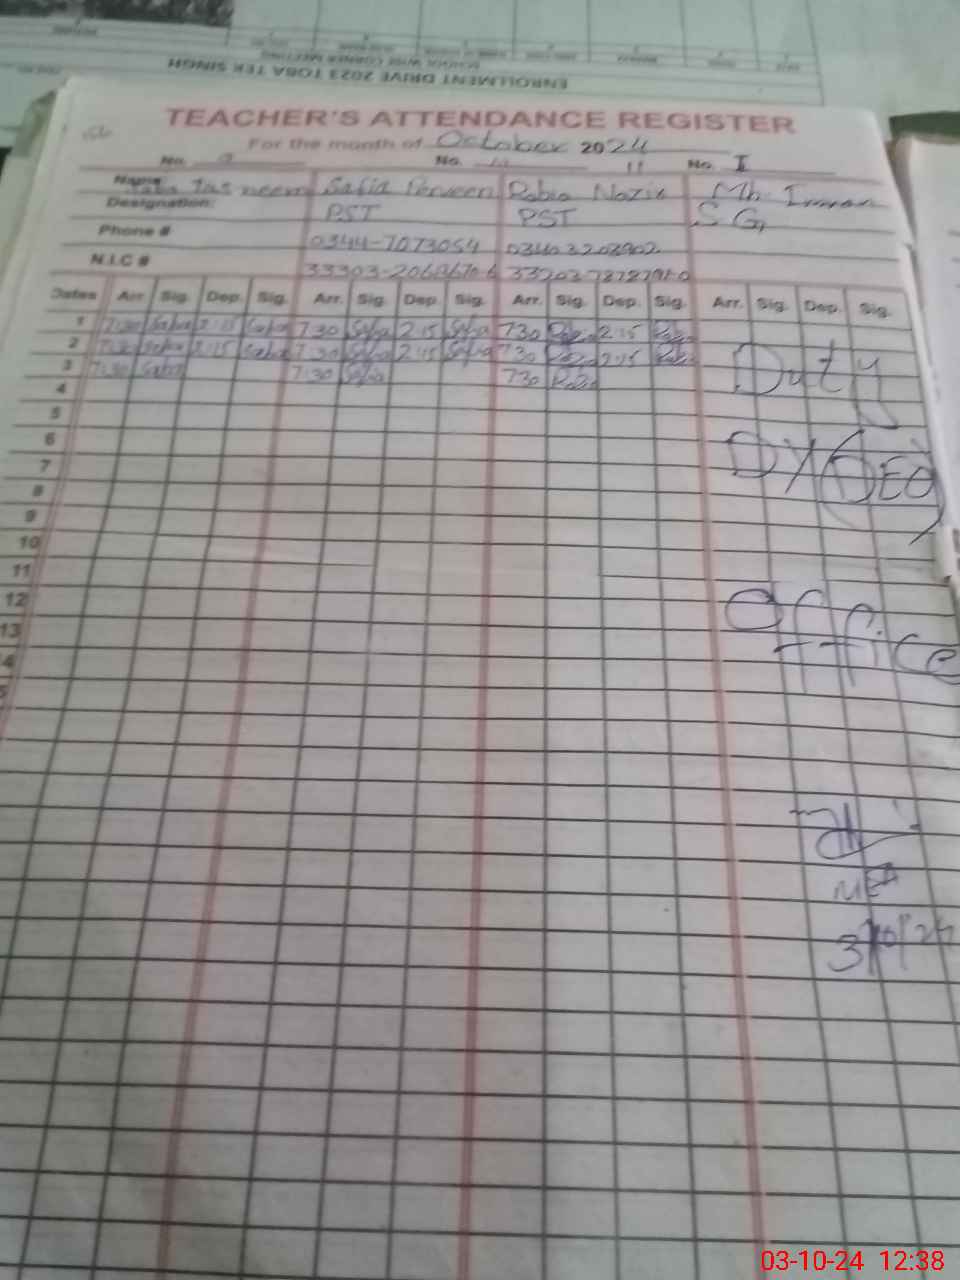 ENROLLMENT DRIVE 2023 TOBA TEK SINGH
SCHOOL WISE CORNER MEETING
TEACHER'S ATTENDANCE REGISTER
For the month of October 2024
No. 9 No. 10 11 No. I
Name: Saba Tasneem Safia Perveen Rabia Nazir Mh. Imran
Designation: PST PST S G
Phone # 0344-7073054 03403203902
N.I.C #
Dates Arr. Sig. Dep. Sig. Arr. Sig. Dep. Sig. Arr. Sig. Dep. Sig. Arr. Sig. Dep. Sig.
1 7:30 Saba 2:15 Saba 7:30 Safia 2:15 Safia 7:30 2:15
2 7:30 Saba 2:15 Saba 7:30 Safia 2:15 Safia 7:30 2:15
3 7:30 Saba 7:30 Safia 7:30
4
5
6
7
8
9
10
11
12
13
Duty
Dy (DEO)
Office
MEA
3/10/24
03-10-24 12:38